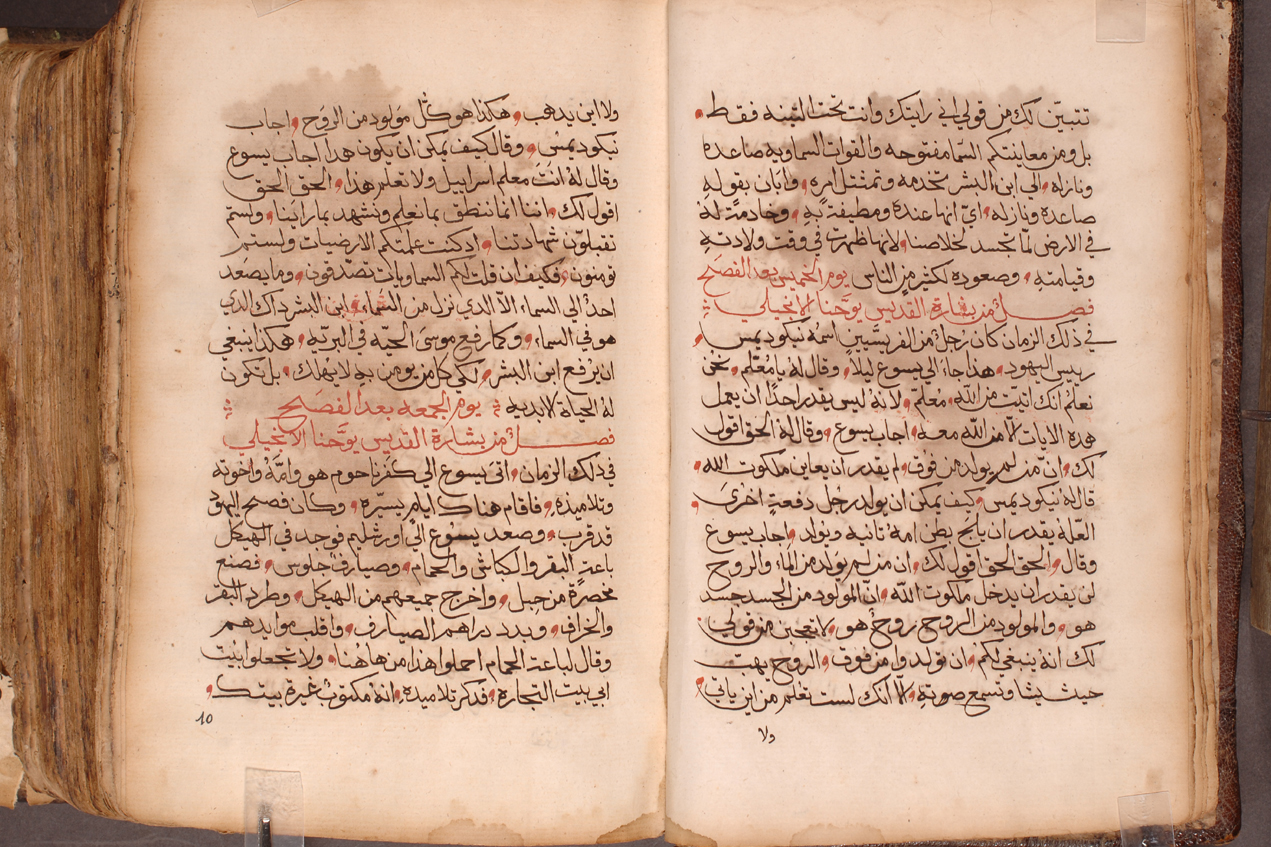 تتبين لك من قولي اني رايتك وانت تحت التينه فقط
بل ومن معاينتكم السما مفتوحه والقوات السماويه صاعده
ونازله الي ابن البشر تخدمه وتمتثل امره وابان بقوله
صاعده ونازله اي انها عنده ومطيفة به وخادمة له
في الارض لما تجسد لخلاصنا لانها ظهرت في وقت ولادته
وقيامته وصعوده لكثير من الناس يوم الخميس بعد الفصح
فصل من بشارة القديس يوحنا الانجيلي
في ذلك الزمان كان رجل من الفريسيين اسمه نيكوديمس
رييس اليهود هذا جاء الي يسوع ليلا وقال له يا معلم نحن
نعلم انك اتيت من الله معلم لانه ليس يقدر احدا ان يعمل
هذه الايات الا من الله معه اجاب يسوع وقال له الحق اقول
لك ان من لم يولد من فوق لم يقدر ان يعاين ملكوت الله
قال له نيكوديمس كيف يمكن ان يولد رجل دفعة اخرى
العله يقدر ان يلج بطن امه ثانية ويولد اجاب يسوع
وقال الحق الحق اقول لك ان من لم يولد من الماء والروح
لن يقدر ان يدخل ملكوت الله ان المولود من الجسد جسد
هو والمولود من الروح روح هو لا تعجبن من قولي
لك انه ينبغي لكم ان تولدوا من فوق والروح يهب
حيث يشا وتسمع صوته الا انك لست تعلم من اين ياتي
ولا
ولا اين يذهب هكذا هو كل مولود من الروح اجاب
نيكوديمس وقال كيف يمكن ان يكون هذا اجاب يسوع
وقال له انت معلم اسراييل ولا تعلم هذا الحق الحق
اقول لك اننا انما ننطق بما نعلم ونشهد بما راينا ولستم
تقبلون شهادتنا ان كنت علمتكم الارضيات ولستم
تومنون فكيف ان قلت لكم السماويات تصدقون وما يصعد
احد الي السماء الا الذي نزل من السماء ابن البشر ذاك الذي
هو في السماء وكما رفع موسى الحيه في البريه هكذا ينبغي
ان يرفع ابن البشر لكي كل من يومن به لا يهلك بل تكون
له الحياة الابديه يوم الجمعه بعد الفصح
فصل من بشارة القديس يوحنا الانجيلي
في ذلك الزمان اتى يسوع الي كفرناحوم هو وامه واخوته
وتلاميذه فاقام هناك ايام يسيرة وكان فصح اليهود
قد قرب وصعد يسوع الي اورشليم فوجد في الهيكل
باعة البقر والكباش والحمام وصيارف جلوس فصنع
مخصرة من حبل واخرج جميعهم من الهيكل وطرد البقر
والخراف وبدد دراهم الصيارف واقلب موايدهم
وقال لباعة الحمام احملوا هذا من هاهنا ولا تجعلوا بيت
ابي بيت التجارة فذكر تلاميذه انه مكتوب غيرة بيتك
10